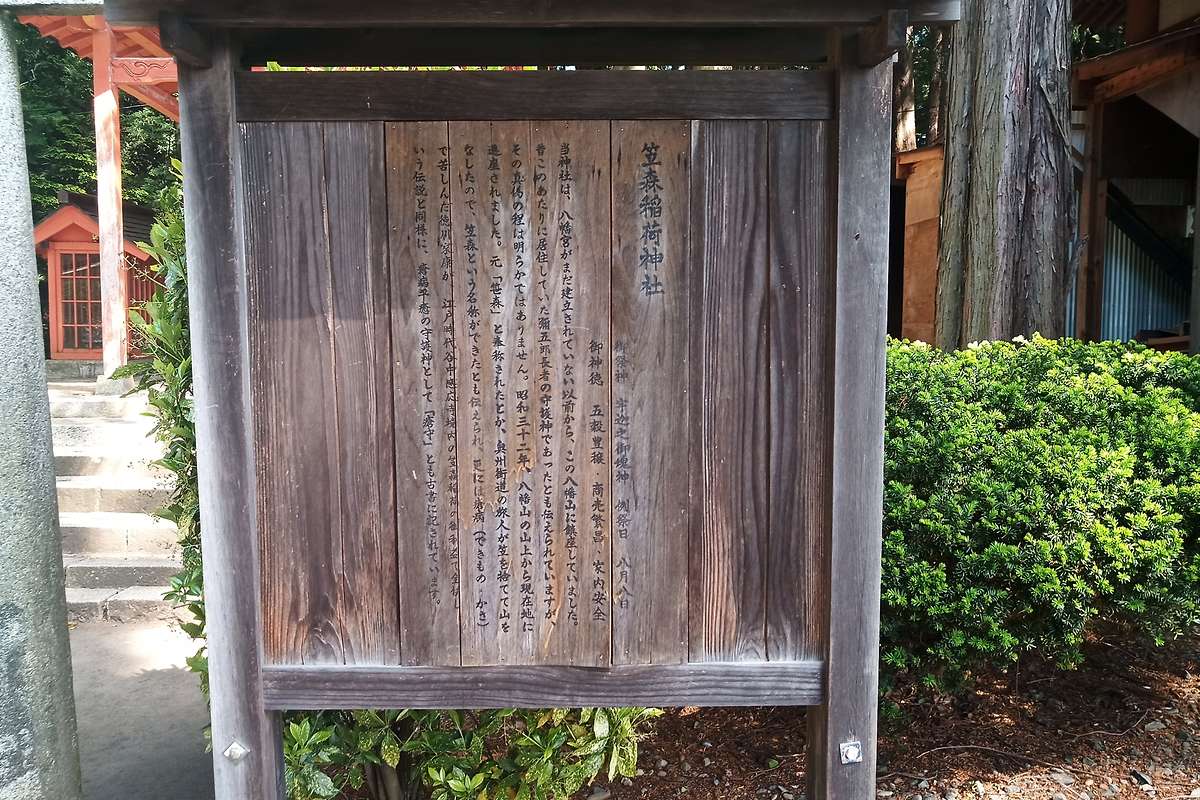 笠森稲荷神社
御祭神 宇迦之御魂神 例祭日 八月八日
御神徳 五穀豊穣・商売繁昌・家内安全
当神社は、八幡宮がまだ建立されていない以前から、この八幡山に鎮座していました。
昔このあたりに居住していた彌五郎長者の守護神であったとも伝えられていますが、
その真偽の程は明らかではありません。昭和三十二年、八幡山の山上から現在地に
遷座されました。元「笹森」と奉称されたとか、奥州街道の旅人が笠を捨てて山を
なしたので、笠森という名称ができたとも伝えられ、更には瘡病(できもの かさ)
で苦しんだ徳川家康が、江戸時代谷中感応寺境内の笠森稲荷の御利益で全快し
いう伝説と同様に、瘡病平癒の守護神として「瘡守」とも古書に記されています。